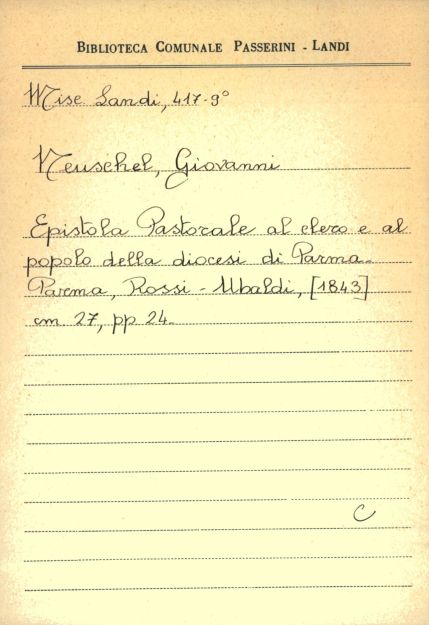 BIBLIOTECA COMUNALE PASSERINI - LANDI
Misc Landi, 417-9°
Neuschel, Giovanni
Epistola Pastorale al clero e al
popolo della diocesi di Parma.
Parma, Rossi - Ubaldi, [1843]
cm 27, pp 24.
C